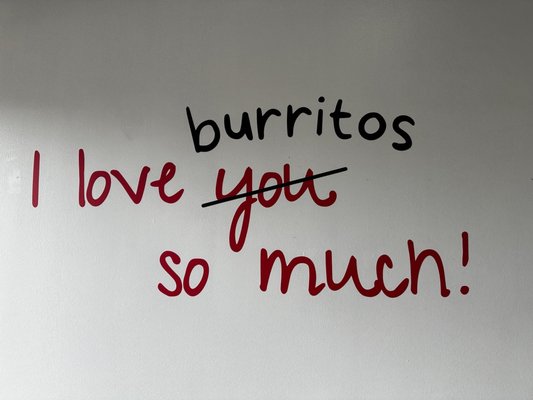 burritos
I love you
so much!